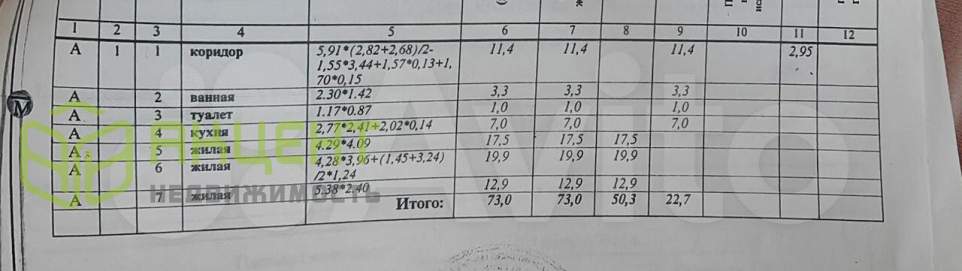 1 2 3 4 5 6 7 8 9 10 11 12
А 1 1 коридор 5,91*(2,82+2,68)/2- 11,4 11,4 11,4 2,95
1,55*3,44+1,57*0,13+1,
70*0,15
А 2 ванная 2.30*1.42 3,3 3,3 3,3
А 3 туалет 1.17*0.87 1,0 1,0 1,0
А 4 кухня 2,77*2,41+2,02*0,14 7,0 7,0 7,0
А 5 жилая 4.29*4.09 17,5 17,5 17,5
А 6 жилая 4,28*3,96+(1,45+3,24) 19,9 19,9 19,9
/2*1,24
А 7 жилая 5.38*2.40 12,9 12,9 12,9
Итого: 73,0 73,0 50,3 22,7
АНЦЕРТ
НЕДВИЖИМОСТЬ
Avito